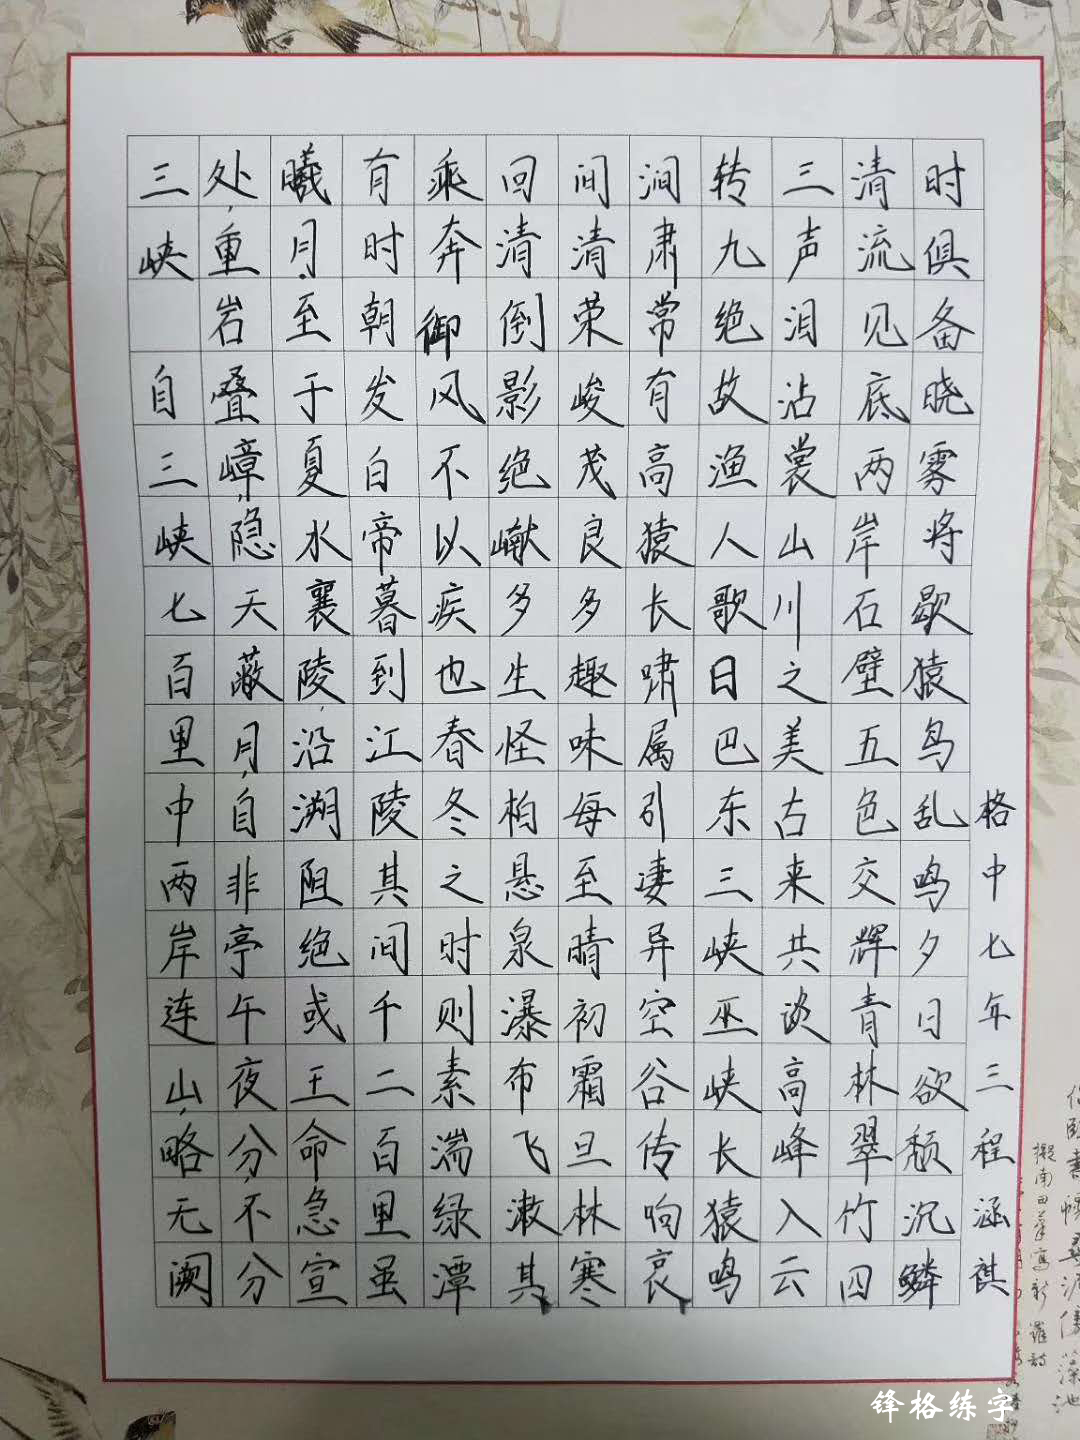 三峡 自三峡七百里中两岸连山,略无阙
处,重岩叠嶂,隐天蔽月,自非亭午夜分,不分
曦月,至于夏水襄陵,沿溯阻绝或王命急宣
有时朝发白帝暮到江陵其间千二百里虽
乘奔御风不以疾也春冬之时则素湍绿潭
回清倒影绝𪩘多生怪柏悬泉瀑布飞漱其
间清荣峻茂良多趣味每至晴初霜旦林寒
涧肃常有高猿长啸属引凄异空谷传响哀
转九绝故渔人歌曰巴东三峡巫峡长猿鸣
三声泪沾裳山川之美古来共谈高峰入云
清流见底两岸石壁五色交辉青林翠竹四
时俱备晓雾将歇猿鸟乱鸣夕日欲颓沉鳞
格中七年三程涵祺
锋格练字